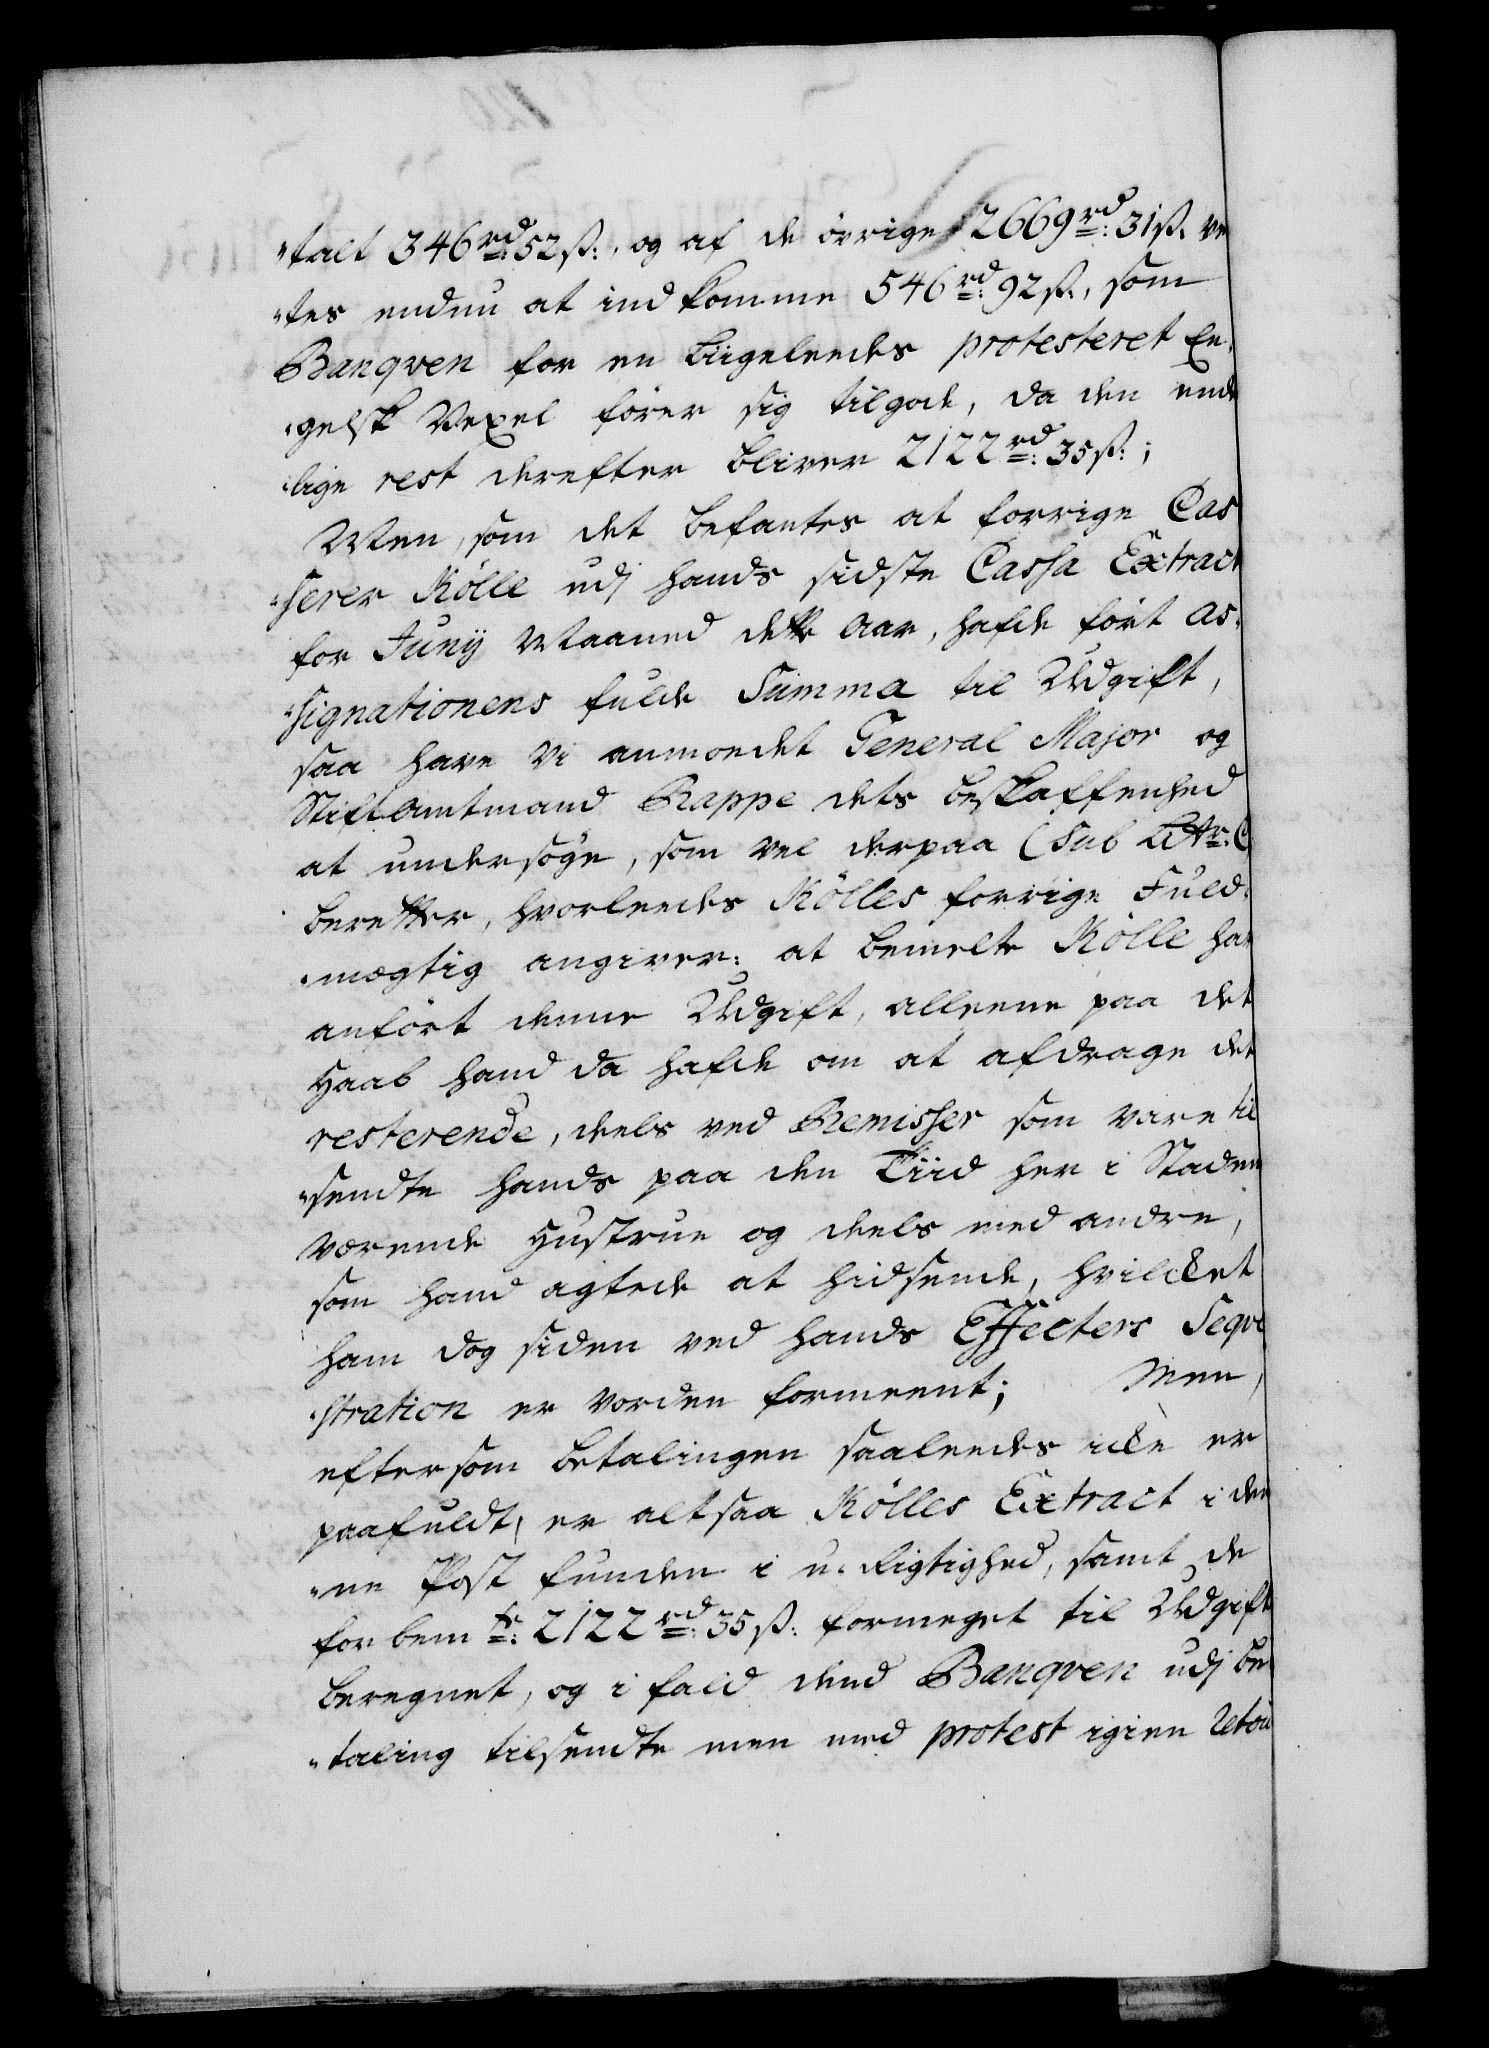 "talt 346 rd: 52 ß:, og af de øvrige 2669 rd: 31 ß. ve
"tes endnu at indkomme 546 rd: 92 ß., som
Banqven for en liigeleedes protesteret En,
"gelsk Vexel fører sig tilgode, da den ende
"lige rest derefter bliver 2122 rd: 35 ß:;
Men, som det befantes at forrige Cas
"serer Kölle udj hands sidste Cassa Extract
for Junij Maaned dette Aar, hafde ført As,
"signationens fulde Summa til Udgift,
saa have Vi anmodet General Major og
Stiftamtmand Rappe dets beskaffenhed
at undersøge, som vel derpaa (sub Littr: C
beretter, hvorleedes Kölles forrige Fuld,
"mægtig angiver: at bemelte Kölle har
anført denne Udgift, alleene paa det
Haab hand da hafde om at afdrage det
resterende, deels ved Remisser som vare til
"sendte hands paa den Tiid her i Staden
værende Hustrue og deels med andre,
som hand agtede at hidsende, hvilcket
ham dog siden ved hands Effecters Seqve
"stration er vorden formeent; Men,
eftersom betalingen saaleedes icke er
paafuldt, er altsaa Kölles Extract i den
"ne Post funden i u-Rigtighed, samt de
forbem te: 2122 rd: 35 ß: formeget til Udgift
beregnet, og i fald dend Banqven udj be
"taling tilsendte men med protest igien retou